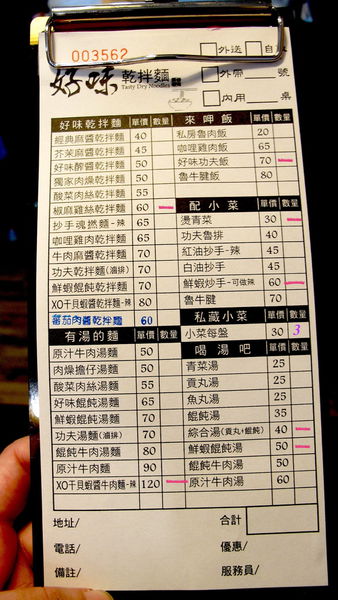 003562
外送 自取
好味 乾拌麵
Tasty Dry Noodles
外帶 號
內用 桌
好味乾拌麵 單價 數量
經典麻醬乾拌麵 40
芥末麻醬乾拌麵 45
好味酢醬乾拌麵 50
獨家肉燥乾拌麵 50
酸菜肉絲乾拌麵 55
椒麻雞絲乾拌麵 60
抄手魂拌麵-辣 65
咖哩雞肉乾拌麵 60
牛肉麻醬乾拌麵 70
功夫乾拌麵(滷排) 70
鮮蝦餛飩乾拌麵 70
XO干貝蝦醬乾拌麵-辣 80
蕃茄肉醬乾拌麵 60
有湯的麵 單價 數量
原汁牛肉湯麵 50
肉燥擔仔湯麵 50
酸菜肉絲湯麵 55
好味餛飩湯麵 60
鮮蝦餛飩湯麵 70
功夫湯麵(滷排) 70
餛飩牛肉湯麵 80
原汁牛肉麵 90
XO干貝蝦醬牛肉麵-辣 120
來呷飯 單價 數量
私房魯肉飯 20
咖哩雞肉飯 65
好味功夫飯 70
魯牛腱飯 80
配小菜 單價 數量
燙青菜 30
功夫魯排 40
紅油抄手-辣 45
白油抄手 45
鮮蝦炒手-可做辣 60
魯牛腱 70
私藏小菜 單價 數量
小菜每盤 30 3
喝湯吧 單價 數量
青菜湯 25
貢丸湯 25
魚丸湯 25
餛飩湯 35
綜合湯(貢丸+餛飩) 40
鮮蝦餛飩湯 50
餛飩牛肉湯 50
原汁牛肉湯 60
地址/ 合計
電話/ 優惠/
備註/ 服務員/